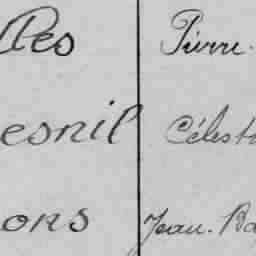 Pierre.
esnil Célest
ons Jean. Ba